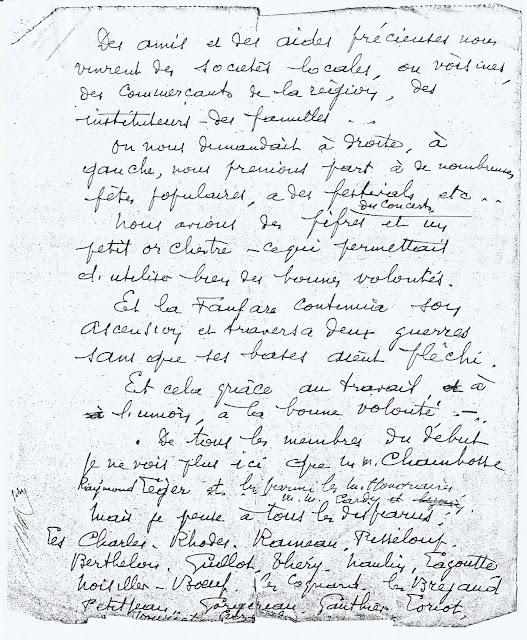 Des amis et des aides précieuses nous
vinrent des sociétés locales, ou voisines,
des commerçants de la région, des
instituteurs - des familles ...
On nous demandait à droite, à
gauche, nous prenions part à de nombreuses
fêtes populaires, a des festivals, etc ...
des concerts
Nous avions des fifres et un
petit orchestre - ce qui permettait
d'utiliser bien des bonnes volontés.
Et la Fanfare continua son
ascension et traversa deux guerres
sans que ses bases aient fléchi.
Et cela grâce au travail à
l'union, à la bonne volonté ...
De tous les membres du début
je ne vois plus ici que M.M. Chambosse
Raymond Léger et parmi les m. honoraires
M.M. Cardy et
Mais je pense à tous les disparus !!
Les Charles - Rhodes. Rameau,
Berthelon, Guillot, Théry, Naulin, Lagoutte
Noisiller - Bœuf, les Cognard. les
Petitjean, Gauthier, Loriot,